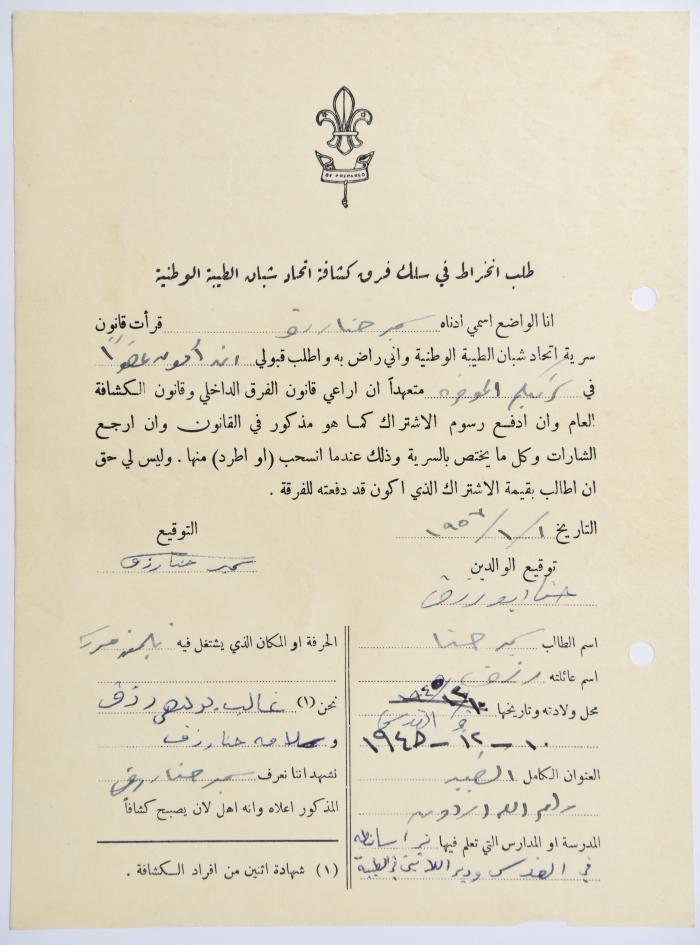 BE PREPARED
طلب انخراط في سلك فرق كشافة اتحاد شبان الطيبة الوطنية
انا الواضع اسمي ادناه سمير حنا رزق قرأت قانون
سرية اتحاد شبان الطيبة الوطنية واني راض به واطلب قبولي ان أكون عضواً
في متعهداً ان اراعي قانون الفرق الداخلي وقانون الكشافة
العام وان ادفع رسوم الاشتراك كما هو مذكور في القانون وان ارجع
الشارات وكل ما يختص بالسرية وذلك عندما انسحب (او اطرد) منها . وليس لي حق
ان اطالب بقيمة الاشتراك الذي اكون قد دفعته للفرقة .
التاريخ ١/١/
التوقيع
سمير حنا رزق
توقيع الوالدين
حنا ابو رزق
اسم الطالب سمير حنا
اسم عائلته رزق
محل ولادته وتاريخها
القدس
١٠ - ١٢ - ١٩٤٥
العنوان الكامل الطيبة
رام الله اردن
المدرسة او المدارس التي تعلم فيها
في القدس ودير اللاتين في الطيبة
الحرفة او المكان الذي يشتغل فيه تلميذ مدرسة
نحن (١) غالب رزق
و سلامه حنا رزق
نشهد اننا نعرف سمير حنا رزق
المذكور اعلاه وانه اهل لان يصبح كشافاً
(١) شهادة اثنين من افراد الكشافة .